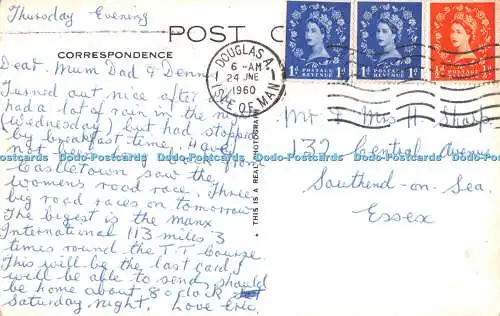 Thursday Evening
POST C
CORRESPONDENCE
DOUGLAS
6 - AM
24 JNE
1960
ISLE OF MAN
1d POSTAGE REVENUE 1d
1d POSTAGE REVENUE 1d
POSTAGE REVENUE
Dear Mum Dad & Denn
Turned out nice after
had a lot of rain in the n
(Wednesday) but had stopped
by breakfast time, Have
not been back long from
Castletown saw the
womens road race, Three
big road races on tomorrow
The bigest is the manx
International 113 miles 3
times round the T.T Course
This will be the last card I
will be able to send, should
be home about 8 o'clock
Saturday night. Love Eric.
THIS IS A REAL PHOTOGRAPH
Mr & Mrs H Sharp
132 Central Avenue
Southend-on-Sea.
Essex
Dodo-Postcards Dodo-Postcards Dodo-Postcards Dodo-Postcards Dodo-Postcards Dodo-Postcards